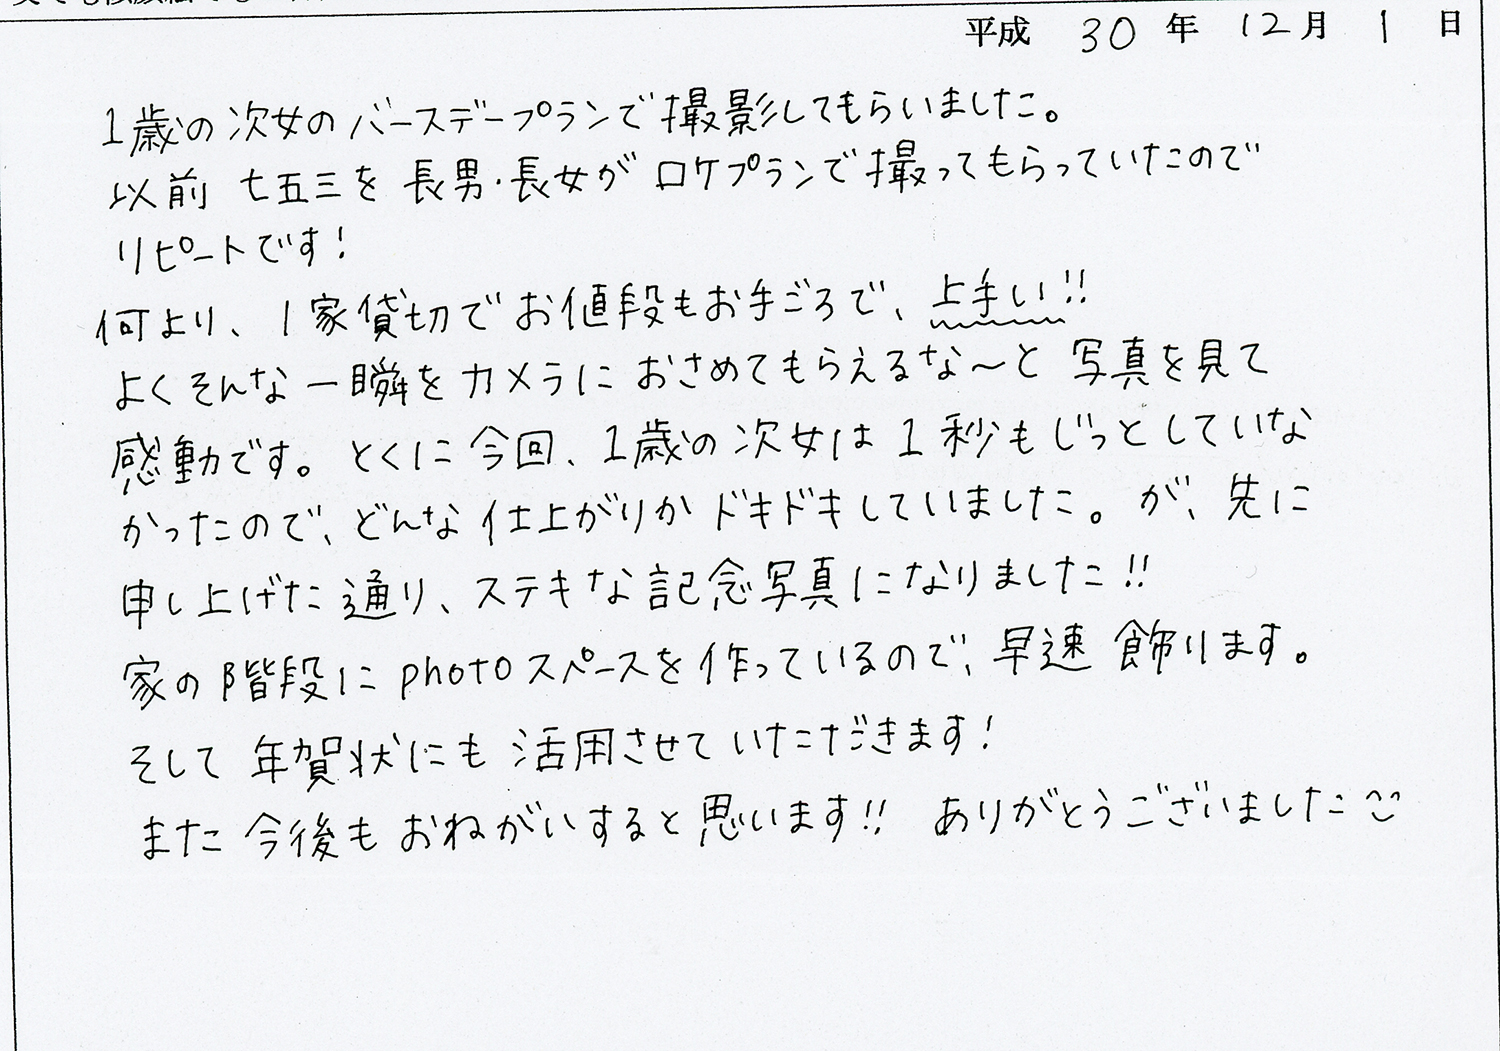 平成 30 年 12 月 1 日
1歳の次女のバースデープランで撮影してもらいました。
以前 七五三を 長男・長女が ロケプランで撮ってもらっていたので
リピートです!
何より、1家貸切でお値段もお手ごろで、上手い!!
よくそんな一瞬をカメラにおさめてもらえるな〜と 写真を見て
感動です。とくに今回、1歳の次女は1秒もじっとしていな
かったので、どんな仕上がりかドキドキしていました。が、先に
申し上げた通り、ステキな記念写真になりました!!
家の階段にphotoスペースを作っているので、早速 飾ります。
そして 年賀状にも 活用させていただきます!
また 今後も おねがいすると思います!! ありがとうございました